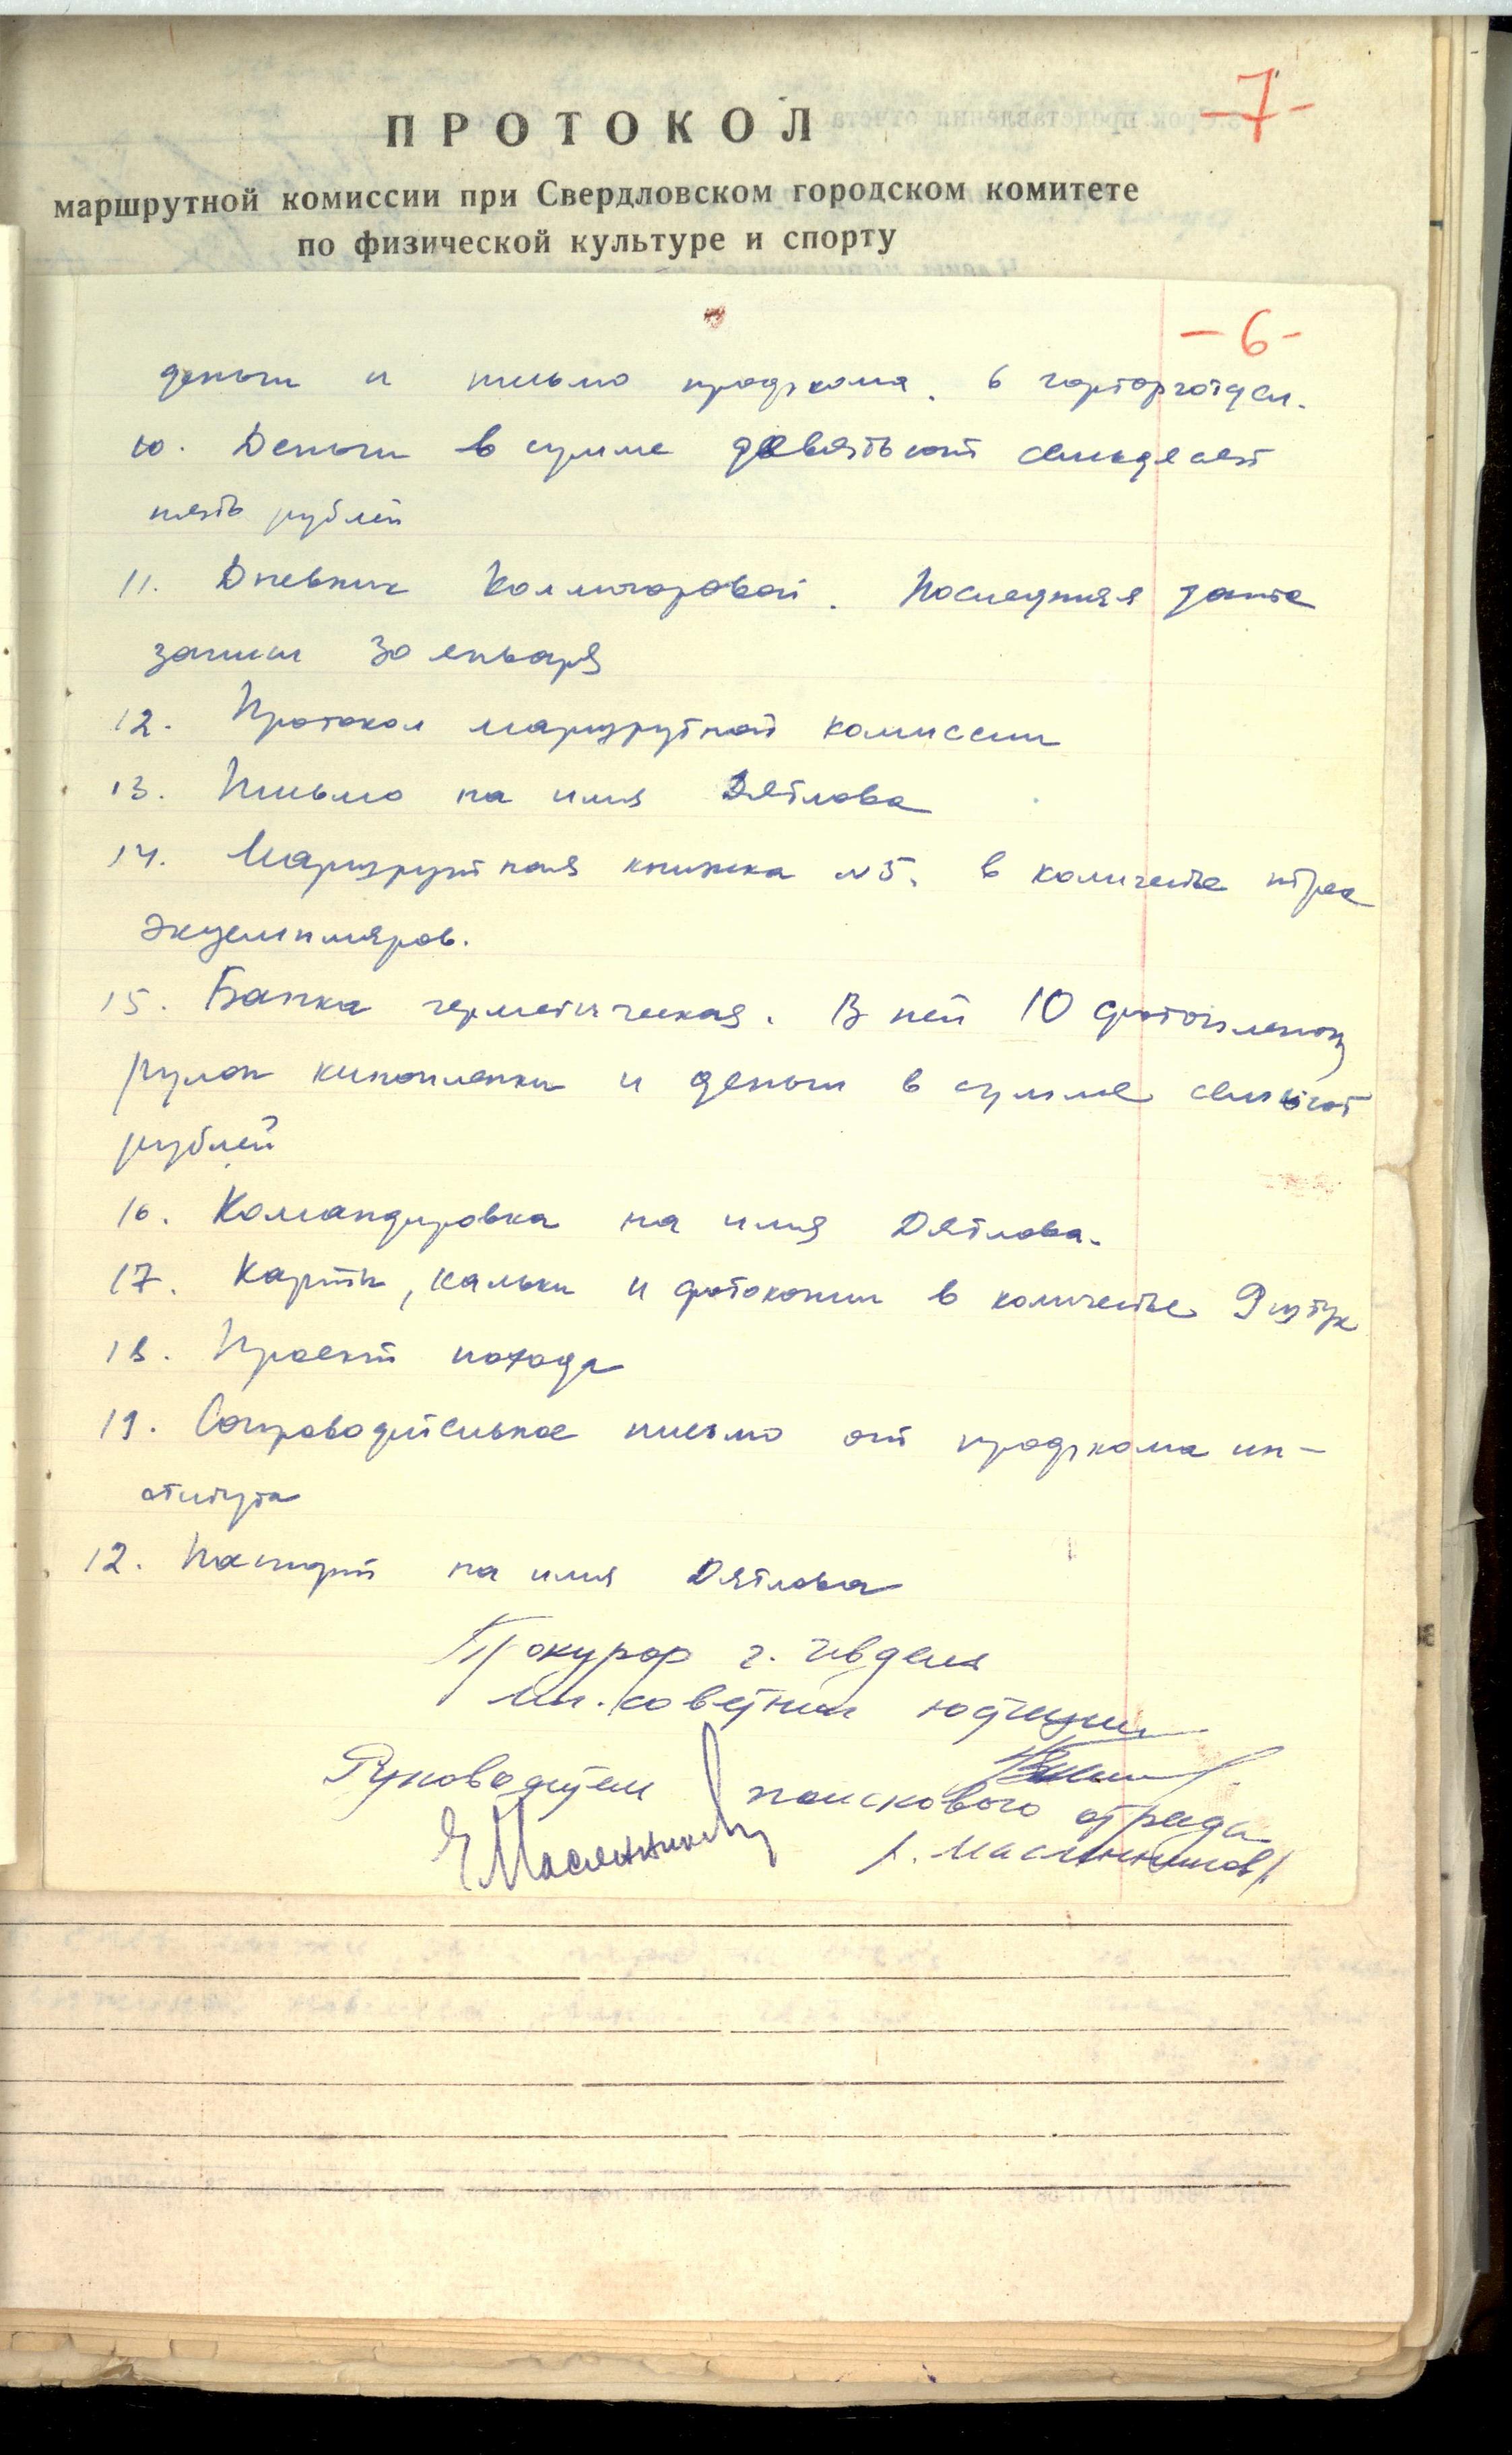 -7-
ПРОТОКОЛ
маршрутной комиссии при Свердловском городском комитете
по физической культуре и спорту
-6-
деньги и письмо профкома. в горторготдел.
10. Деньги в сумме девятьсот семьдесят
пять рублей
11. Дневник Колмогоровой. Последняя дата
записи 30 января
12. Протокол маршрутной комиссии
13. Письмо на имя Дятлова
14. Маршрутная книжка №5. в количестве трех
экземпляров.
15. Банка герметическая. В ней 10 фотопленок
рулон кинопленки и деньги в сумме семьсот
рублей
16. Командировка на имя Дятлова.
17. Карты, кальки и фотокопии в количестве 9 штук
18. Проект похода
19. Сопроводительное письмо от профкома ин-
ститута
12. Паспорт на имя Дятлова
Прокурор г. Ивделя
мл. советник юстиции
Руководитель поискового отряда
ЕМасленников
/. Масленников/